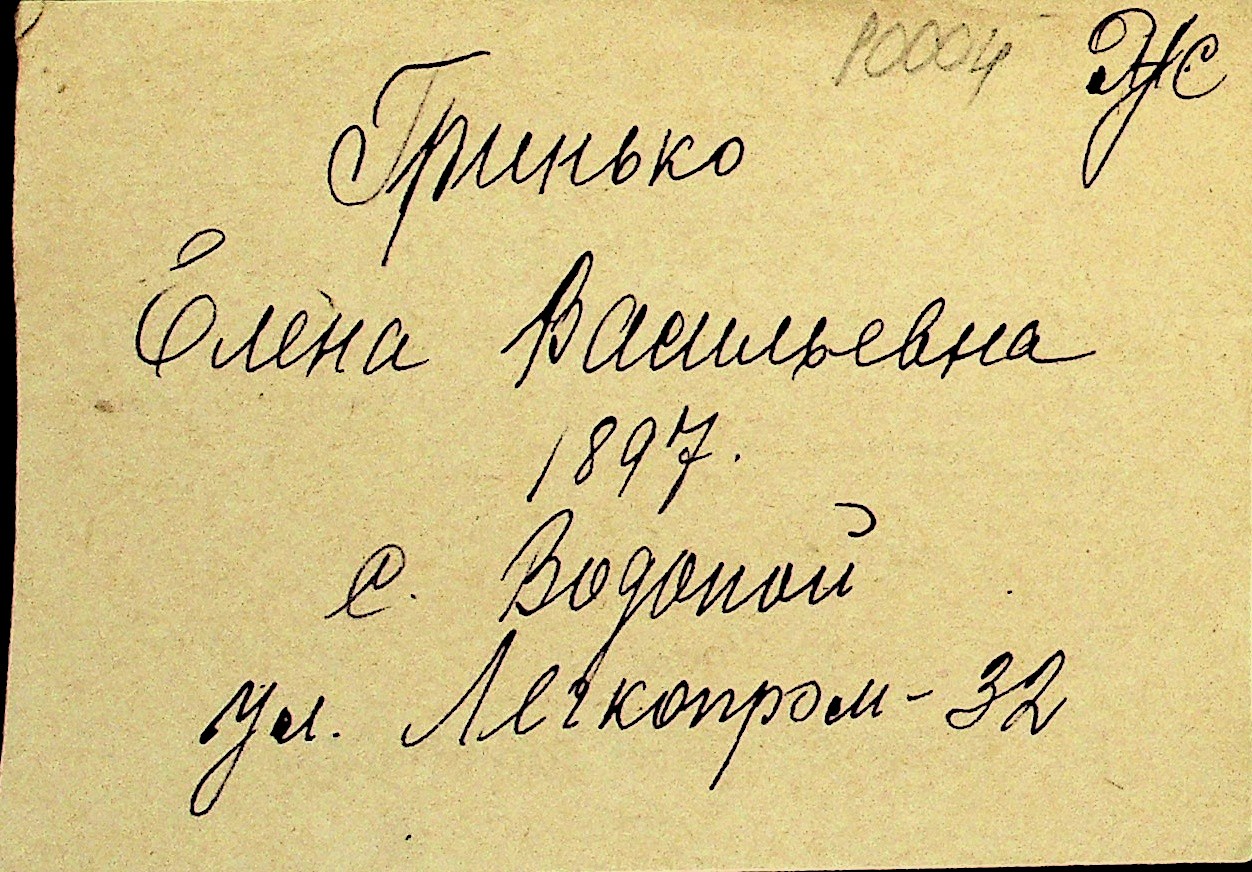 10004 Ус
Гринько
Елена Васильевна
1897.
с. Водопой
ул. Легкопром-32